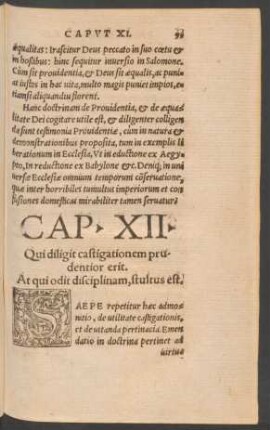 CAPVT XI.
æqualitas: Irascitur Deus peccato in suo cœtu et
in hostibus: hinc sequitur inuersio in Salomone.
Cùm sit prouidentia, & Deus sit æqualis, ac puniat
iustos in hac vita, multo magis puniet impios, e-
tiamsi aliquandiu florent.
Hanc doctrinam de Prouidentia, & de æqua-
litate Dei cogitare utile est, & diligenter colligen-
da sunt testimonia Prouidentiæ, cum in natura &
demonstrationibus proposita, tum in exemplis li
berationum in Ecclesia, Vt in eductione ex Aegy-
pto, In reductione ex Babylone &c. Deniq; in uni
uersæ Ecclesiæ omnium temporum cõseruatione,
quæ inter horribiles tumultus imperiorum et con
fusiones domesticas mirabiliter tamen seruatur.
CAP. XII.
Qui diligit castigationem pru-
dentior erit.
At qui odit disciplinam, stultus est.
SAEPE repetitur hæc admo-
nitio, de utilitate castigationis,
et de uitanda pertinacia. Emen
datio in doctrina pertinet ad
uirtus